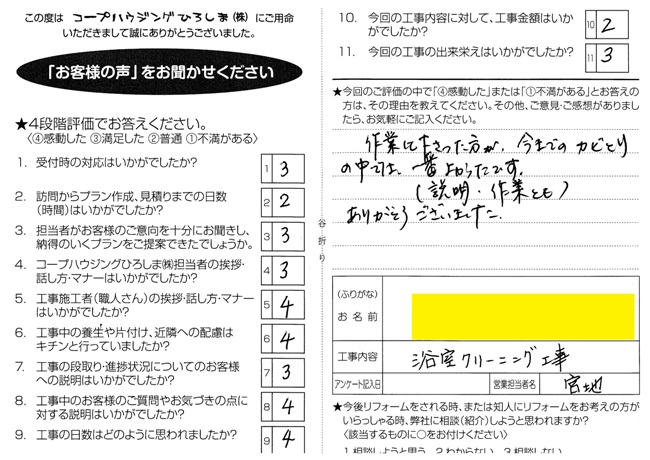 この度は コープハウジングひろしま(株) にご用命
いただきまして誠にありがとうございました。
「お客様の声」をお聞かせください
★4段階評価でお答えください。
〈④感動した ③満足した ②普通 ①不満がある〉
1. 受付時の対応はいかがでしたか? 1 3
2. 訪問からプラン作成、見積りまでの日数
(時間)はいかがでしたか? 2 2
3. 担当者がお客様のご意向を十分にお聞きし、
納得のいくプランをご提案できたでしょうか。 3 3
4. コープハウジングひろしま㈱担当者の挨拶・
話し方・マナーはいかがでしたか? 4 3
5. 工事施工者(職人さん)の挨拶・話し方・マナー
はいかがでしたか? 5 4
6. 工事中の養生や片付け、近隣への配慮は
キチンと行っていましたか? 6 4
7. 工事の段取り・進捗状況についてのお客様
への説明はいかがでしたか? 7 3
8. 工事中のお客様のご質問やお気づきの点に
対する説明はいかがでしたか? 8 4
9. 工事の日数はどのように思われましたか? 9 4
谷折り
10. 今回の工事内容に対して、工事金額はいか
がでしたか? 10 2
11. 今回の工事の出来栄えはいかがでしたか? 11 3
★今回のご評価の中で「④感動した」または「①不満がある」とお答えの
方は、その理由を教えてください。その他、ご意見・ご感想がありまし
たら、お気軽にご記入ください。
作業に来さった方が、今までのカビとり
の中では、一番よかったです。
(説明・作業とも)
ありがとうございました。
(ふりがな)
お名前
工事内容 浴室クリーニング工事
アンケート記入日 営業担当者名 宮地
★今後リフォームをされる時、または知人にリフォームをお考えの方が
いらっしゃる時、弊社に相談(紹介)しようと思われますか?
〈該当するものに○をお付けください〉
1.相談しようと思う 2.わからない 3.相談しない